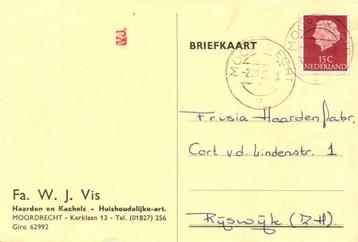 BRIEFKAART
15C
NEDERLAND
MOORDRECHT
Frisia Haardenfabr.
Cort v.d. Lindenstr. 1
Rijswijk (Z.H)
Fa. W. J. Vis
Haarden en Kachels - Huishoudelijke-art.
MOORDRECHT - Kerklaan 13 - Tel. (01827) 256
Giro 62992